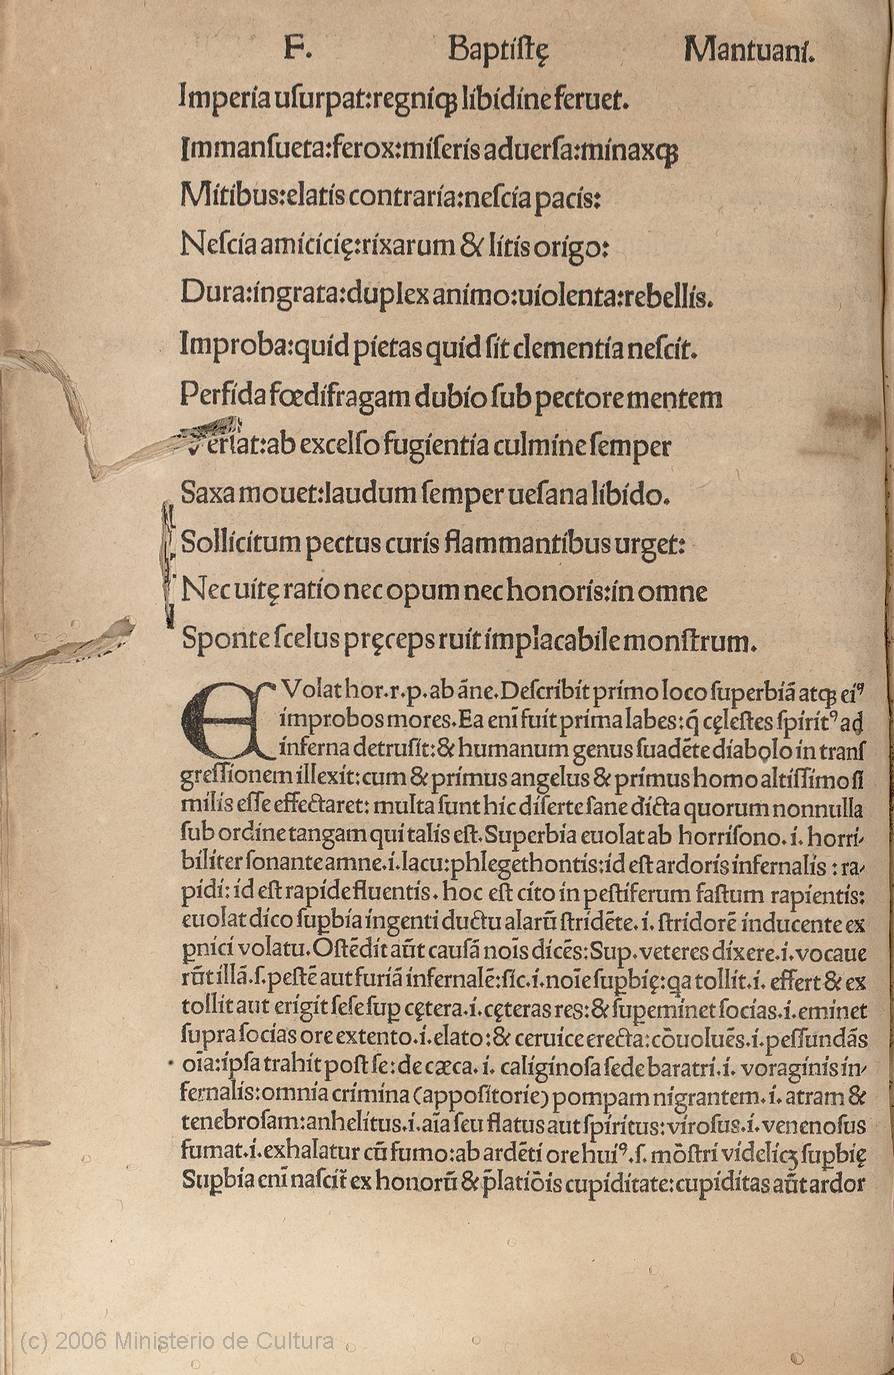 F. Baptiſtę Mantuani.
Imperia uſurpat:regniqꝫ libidine feruet.
Immanſueta:ferox:miſeris aduerſa:minaxqꝫ
Mitibus:elatis contraria:neſcia pacis:
Neſcia amicicię:rixarum & litis origo:
Dura:ingrata:duplex animo:uiolenta:rebellis.
Improba:quid pietas quid ſit clementia neſcit.
Perfida fœdifragam dubio ſub pectore mentem
Verſat:ab excelſo fugientia culmine ſemper
Saxa mouet:laudum ſemper ueſana libido.
Sollicitum pectus curis flammantibus urget:
Nec uitę ratio nec opum nec honoris:in omne
Sponte ſcelus pręceps ruit implacabile monſtrum.
EVolat hor.r.p.ab āne.Deſcribit primo loco ſuperbiā atqꝫ eiꝰ
improbos mores.Ea eni̅ fuit prima labes:q̄ cęleſtes ſpiritꝰ ad
inferna detruſit:& humanum genus ſuadēte diabolo in tranſ
greſſionem illexit:cum & primus angelus & primus homo altiſſimo ſi
milis eſſe effectaret: multa ſunt hic diſerte ſane dicta quorum nonnulla
ſub ordine tangam qui talis eſt.Superbia euolat ab horriſono.i. horri-
biliter ſonante amne.i.lacu:phlegethontis:id eſt ardoris infernalis : ra-
pidi: id eſt rapide fluentis. hoc eſt cito in peſtiferum faſtum rapientis:
euolat dico ſuꝑbia ingenti ductu alarū ſtridēte.i. ſtridorē inducente ex
ꝑnici volatu.Oſtēdit aūt cauſā nois̅ dicēs:Sup.veteres dixere.i.vocaue
rūt illā.ſ.peſtē aut furiā infernalē:ſic.i.noi̅e ſuꝑbię:qa tollit.i. effert & ex
tollit aut erigit ſeſe ſuꝑ cętera.i.cęteras res:& ſuꝑeminet ſocias.i.eminet
ſupra ſocias ore extento.i.elato:& ceruice erecta:cōuoluēs.i.peſſundās
oi̅a:ipſa trahit poſt ſe:de cæca.i. caliginoſa ſede baratri.i. voraginis in-
fernalis:omnia crimina (appoſitorie) pompam nigrantem.i. atram &
tenebroſam:anhelitus.i.ai̅a ſeu flatus aut ſpiritus:viroſus.i.venenoſus
fumat.i.exhalatur cū fumo:ab ardēti ore huiꝰ.ſ. mōſtri videlicꝫ ſuꝑbię
Suꝑbia eni̅ naſcit̅ ex honorū & p̄latiōis cupiditate:cupiditas aūt ardor
(c) 2006 Ministerio de Cultura